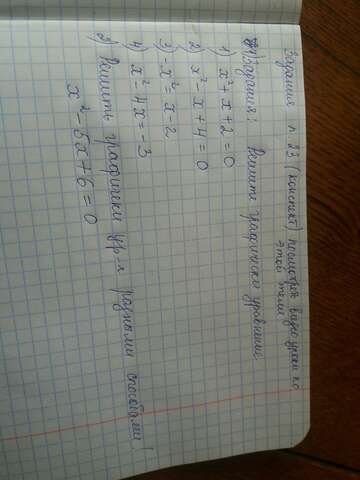 Задания п. 23 (конспект) посмотреть видео уроки по
этой теме
Задания: Решите графически уравнение
1) x² + x + 2 = 0
2) x² - x + 4 = 0
3) -x² = x - 2
4) x² - 4x = -3
2) Решить графически ур-е разными способами!
x² - 5x + 6 = 0